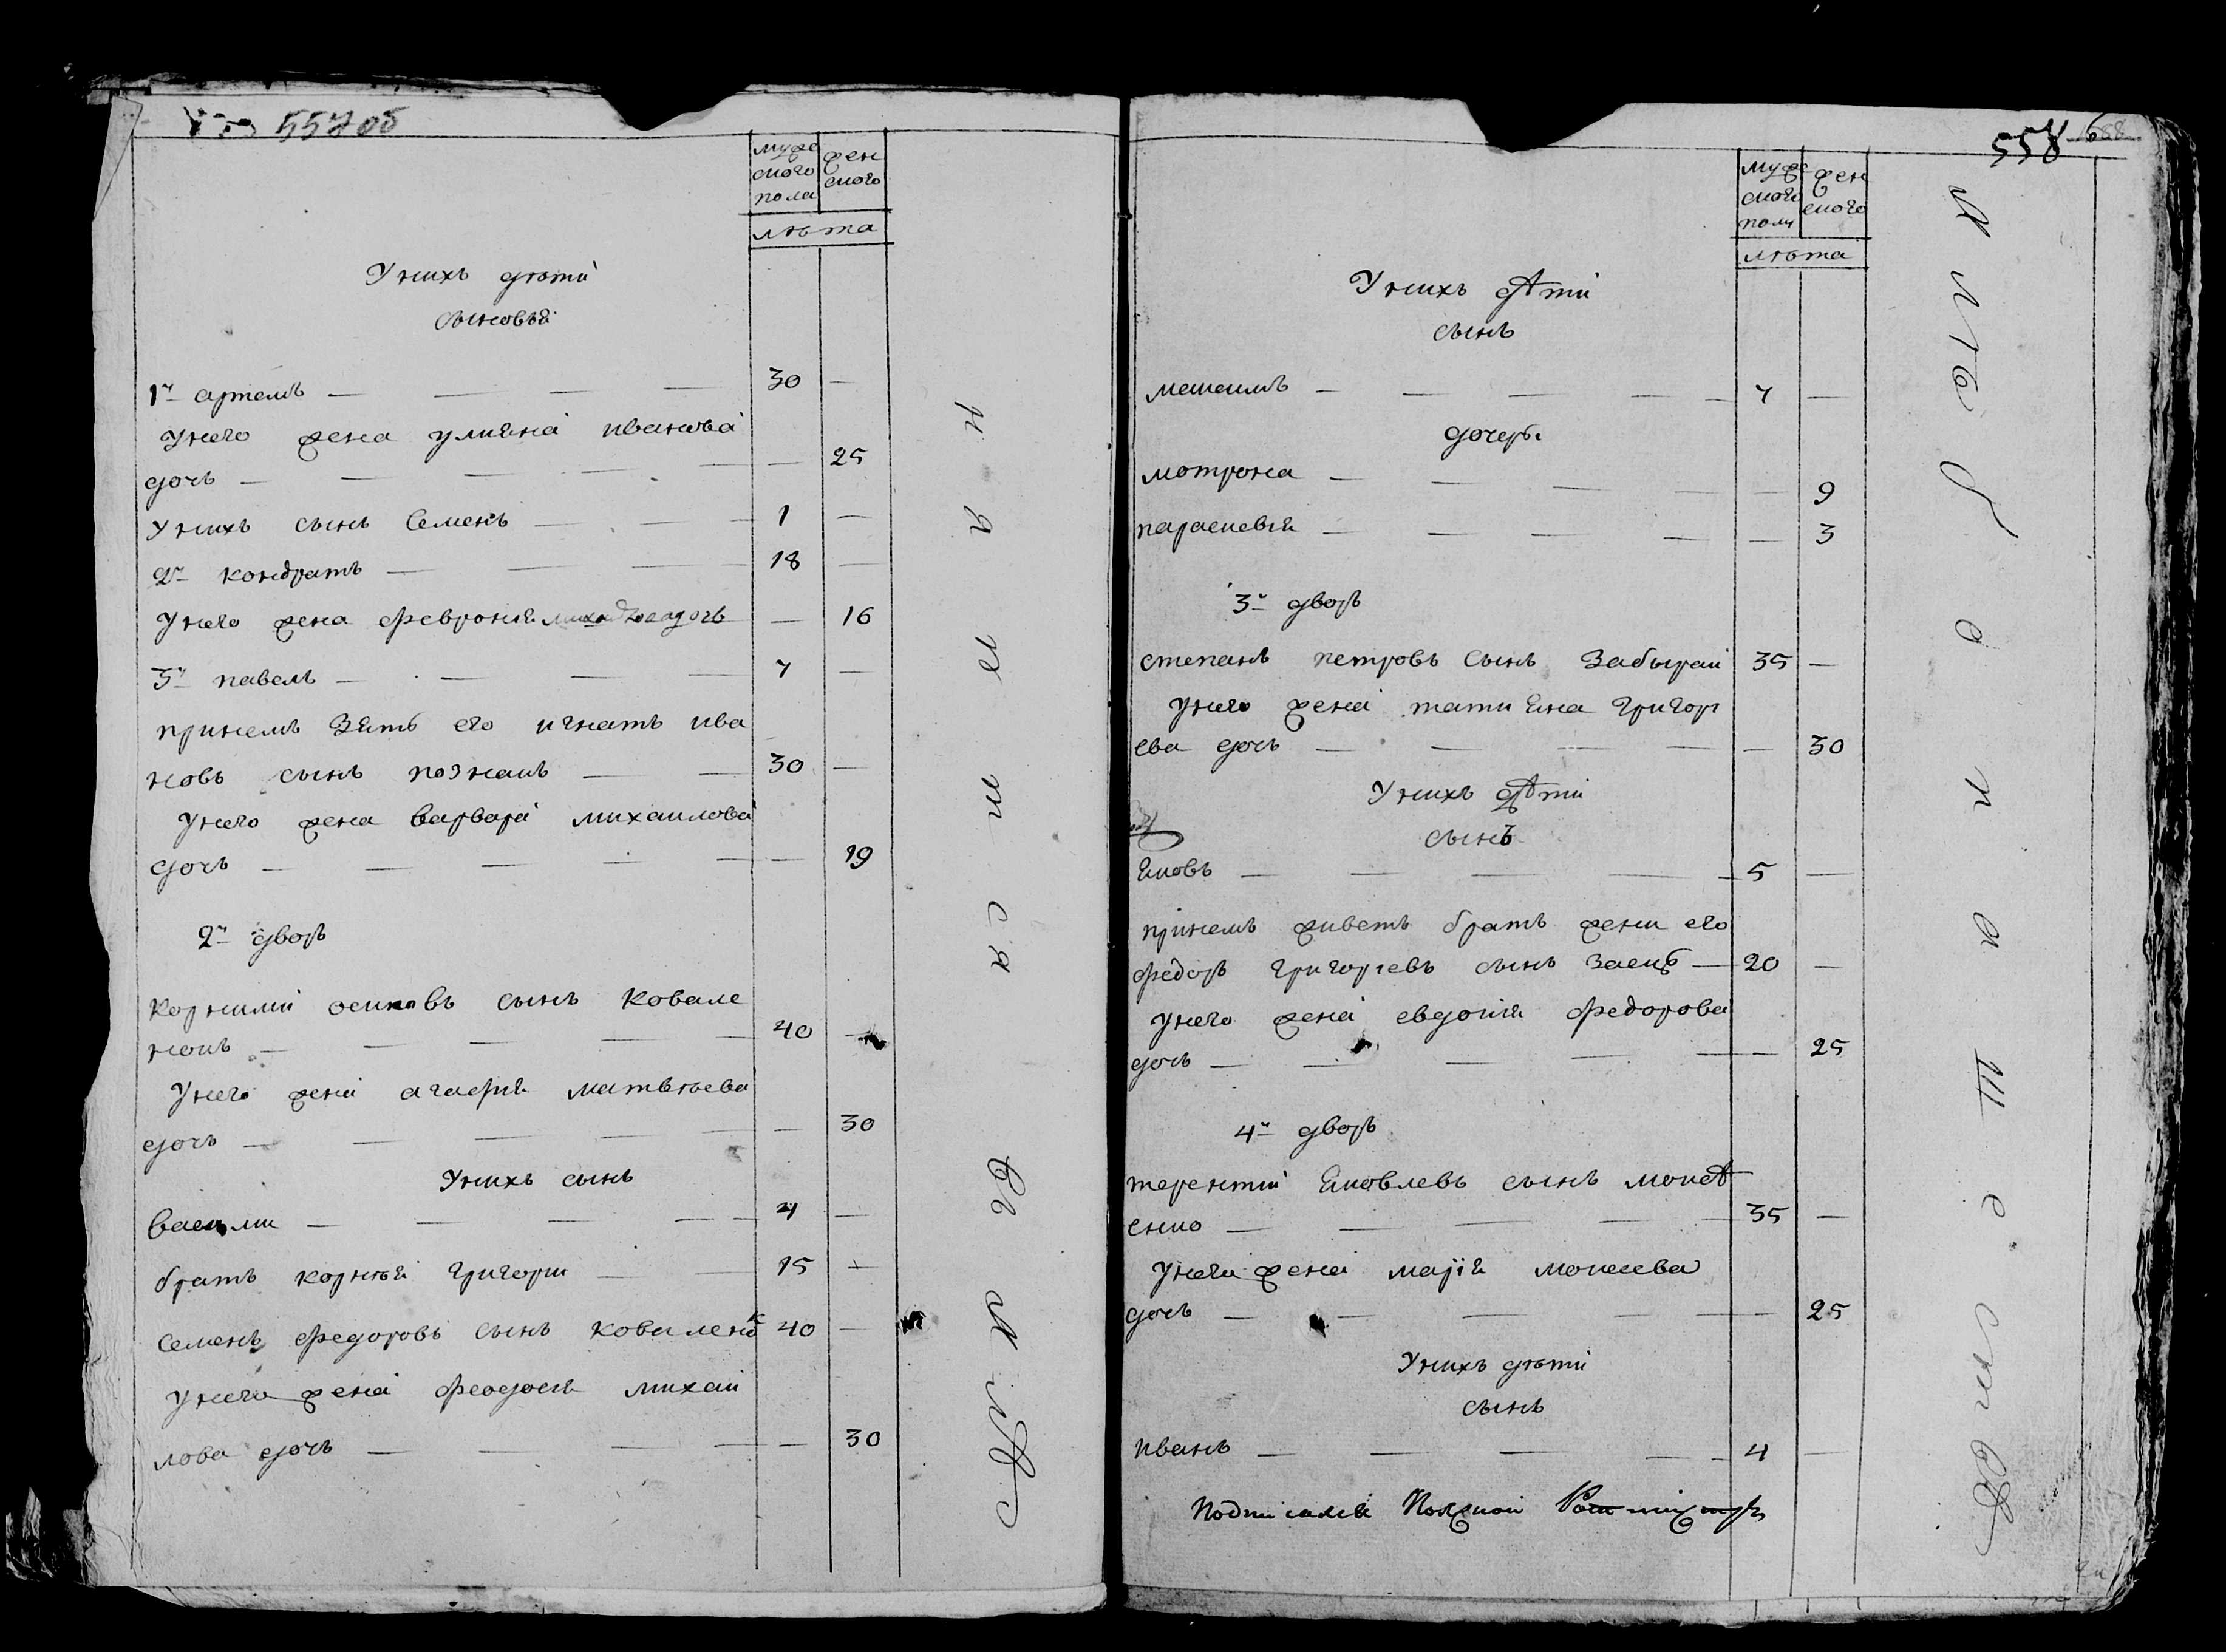 557об
муже
ского
пола
жен
ского
лѣта
У нихъ дѣти
сыновья
1й артемъ — 30 —
У него жена улияна иванова
дочь — — 25
У нихъ сынъ Семенъ — 1 —
2й кондратъ — 18 —
У него жена феврония дочь — 16
3й павелъ — 7 —
принемъ зять его игнатъ ива
новъ сынъ познакъ — 30 —
У него жена варвара михаилова
дочь — — 19
2й дворъ
Корнилий осиповъ сынъ Ковале
нокъ — 40 —
У него жена агафия матвѣева
дочь — — 30
У нихъ сынъ
василий — 4 —
братъ корнѣя григорий — 15 —
Семенъ федоровъ сынъ коваленок 40 —
У него жена феодосия михаи
лова дочь — — 30
558
муже
ского
пола
жен
ского
лѣта
У нихъ дѣти
сынъ
максимъ — 7 —
дочери
мотрона — — 9
параскевия — — 3
3й дворъ
степанъ петровъ сынъ Забырай 35 —
У него жена татияна григорі
ева дочь — — 30
У нихъ дѣти
сынъ
яковъ — 5 —
принемъ живетъ братъ жени его
федоръ григориевъ сынъ заецъ — 20 —
У него жена евдокия федорова
дочь — — 25
4й дворъ
терентий яковлевъ сынъ мокѣ
енко — 35 —
У него жена мария моисеева
дочь — — 25
У нихъ дѣти
сынъ
иванъ — 4 —
Подписался Полковой